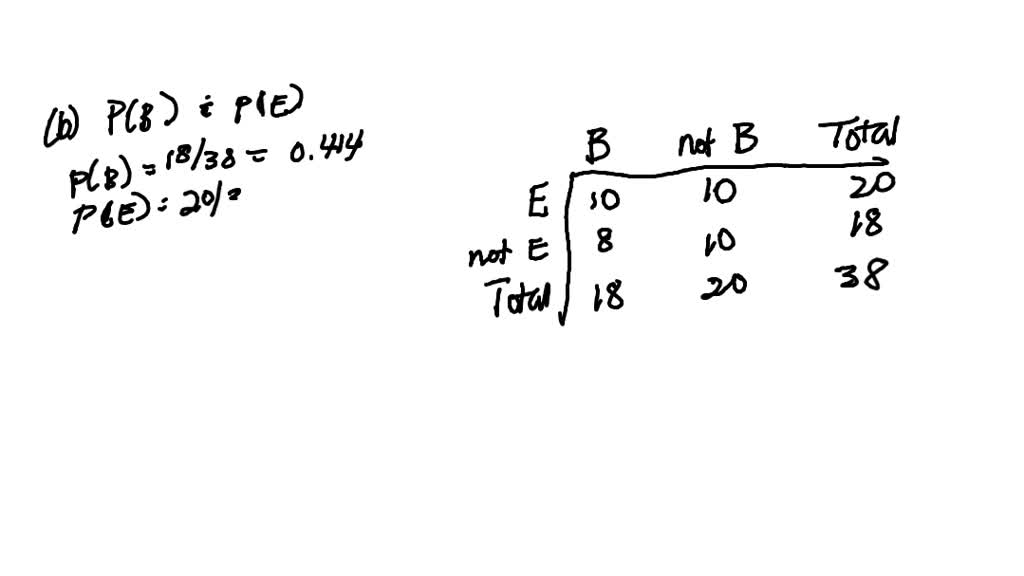 (b) P(B) & P(E)
P(B) = 18/38 = 0.414
P(E) = 20/
B not B Total
E 10 10 20
not E 8 10 18
Total 18 20 38